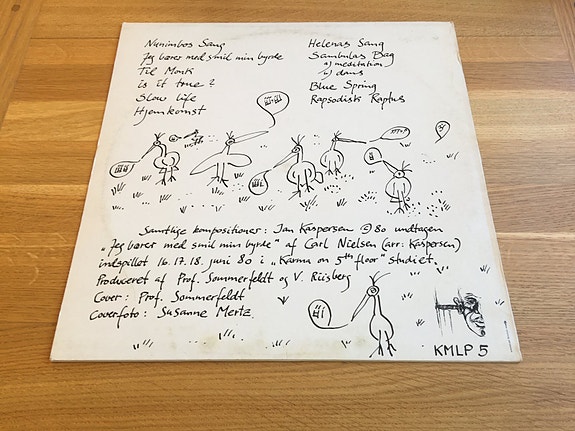 Nunimbos Sang
Jeg bærer med smil min byrde
Til Monk
is it true?
Slow life
Hjemkomst
Helenas Sang
Sambulas Dag
a) meditation
b) dans
Blue Spring
Rapsodisk Raptus
Samtlige kompositioner: Jan Kaspersen ℗ 80 undtagen
"Jeg bærer med smil min byrde" af Carl Nielsen (arr: Kaspersen)
indspillet 16. 17. 18. juni 80 i "Karma on 5th floor" studiet.
Produceret af Prof. Sommerfeldt og V. Riisberg
Cover: Prof. Sommerfeldt
Coverfoto: Susanne Mertz.
KMLP 5